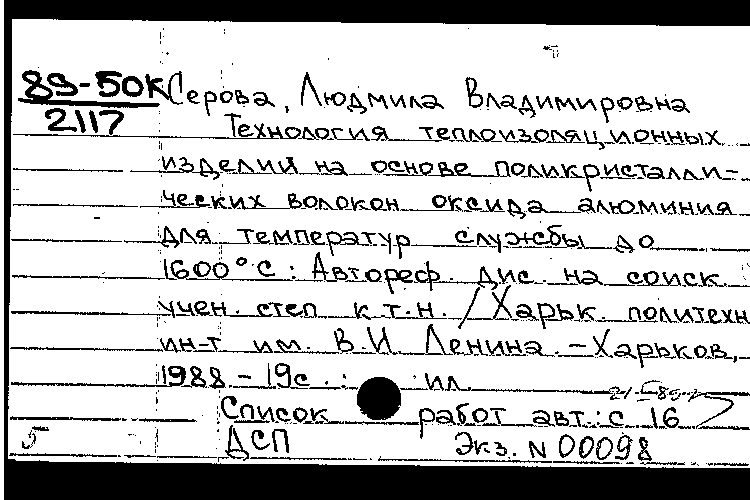 89-50К Серова, Людмила Владимировна
2117
Технология теплоизоляционных
изделий на основе поликристалли-
ческих волокон оксида алюминия
для температур службы до
1600°С: Автореф. дис. на соиск.
учен. степ к.т.н. / Харьк. политехн
ин-т им. В.И. Ленина. - Харьков,
1988 - 19с. : ил.
Список работ авт.: с 16
5 ДСП Экз. N 00098